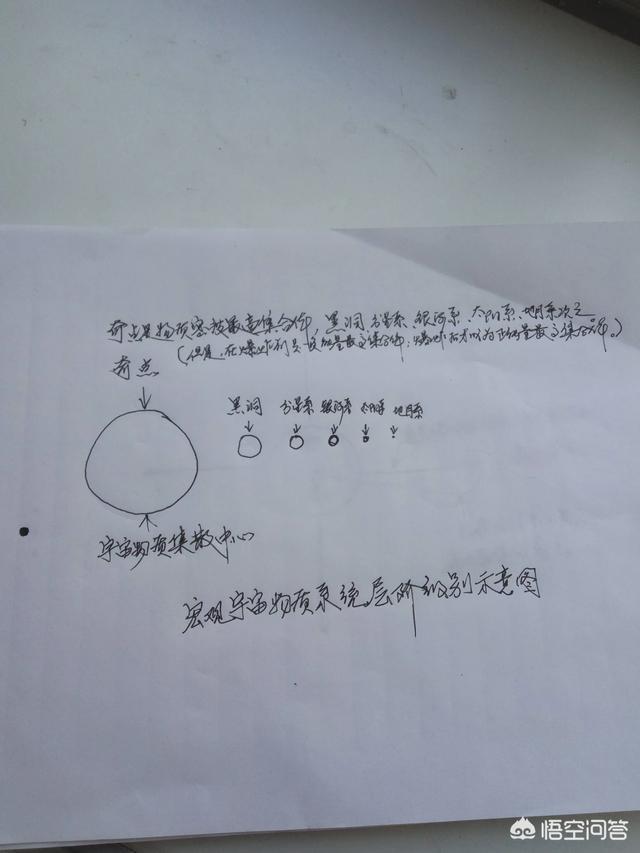 奇点是物质密度最高集合体，黑洞、台星系、银河系、太阳系、地月系次之
(但是，在爆炸时是负能量散之集合体；爆炸后才成为正能量散之集合体。)
奇点
黑洞 台星系 银河系 太阳系 地月系
宇宙物质集散中心
宏观宇宙物质系统层阶级别示意图
悟空问答